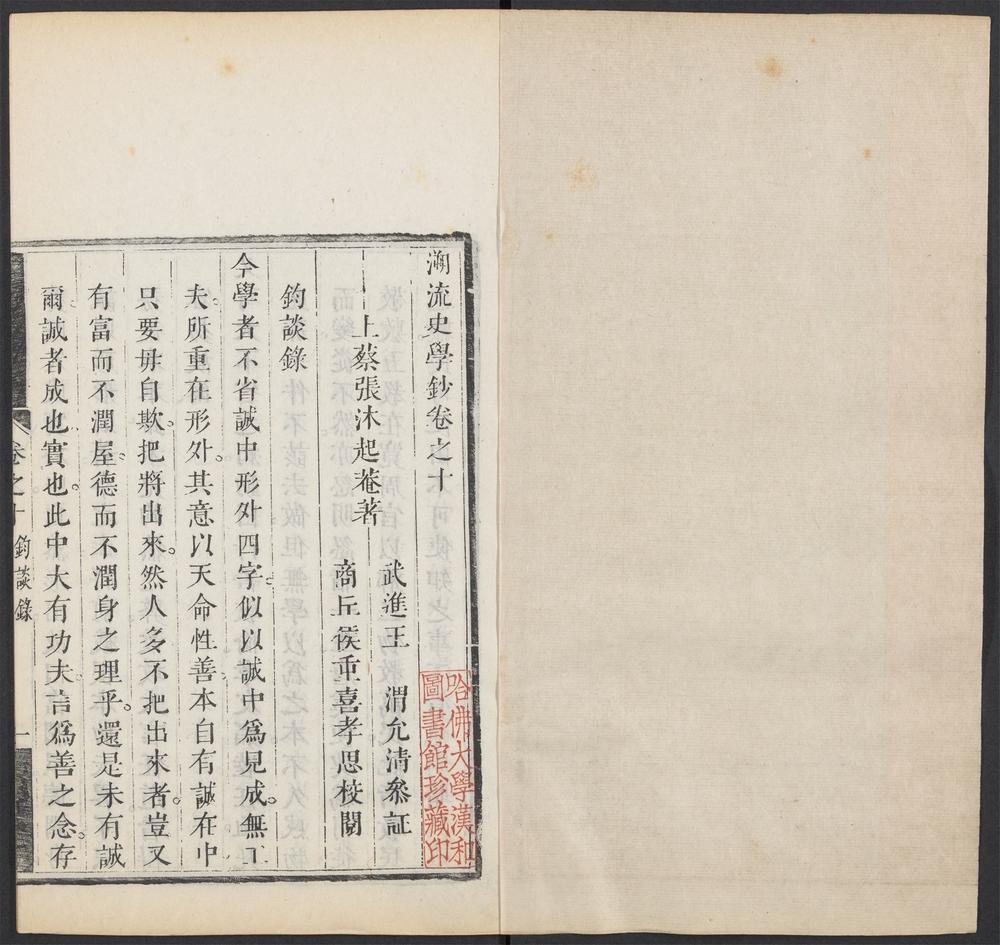 溯流史學鈔卷之十
上蔡張沐起菴著
武進王 渭允清叅証
商丘侯重喜孝思校閱
鈞談錄
今學者不省誠中形外四字似以誠中爲見成無工
夫所重在形外其意以天命性善本自有誠在中
只要毋自欺把將出來然人多不把出來者豈又
有富而不潤屋德而不潤身之理乎還是未有誠
爾誠者成也實也此中大有功夫言爲善之念存
卷之十 鈞談錄 一
哈佛大學漢和
圖書館珍藏印